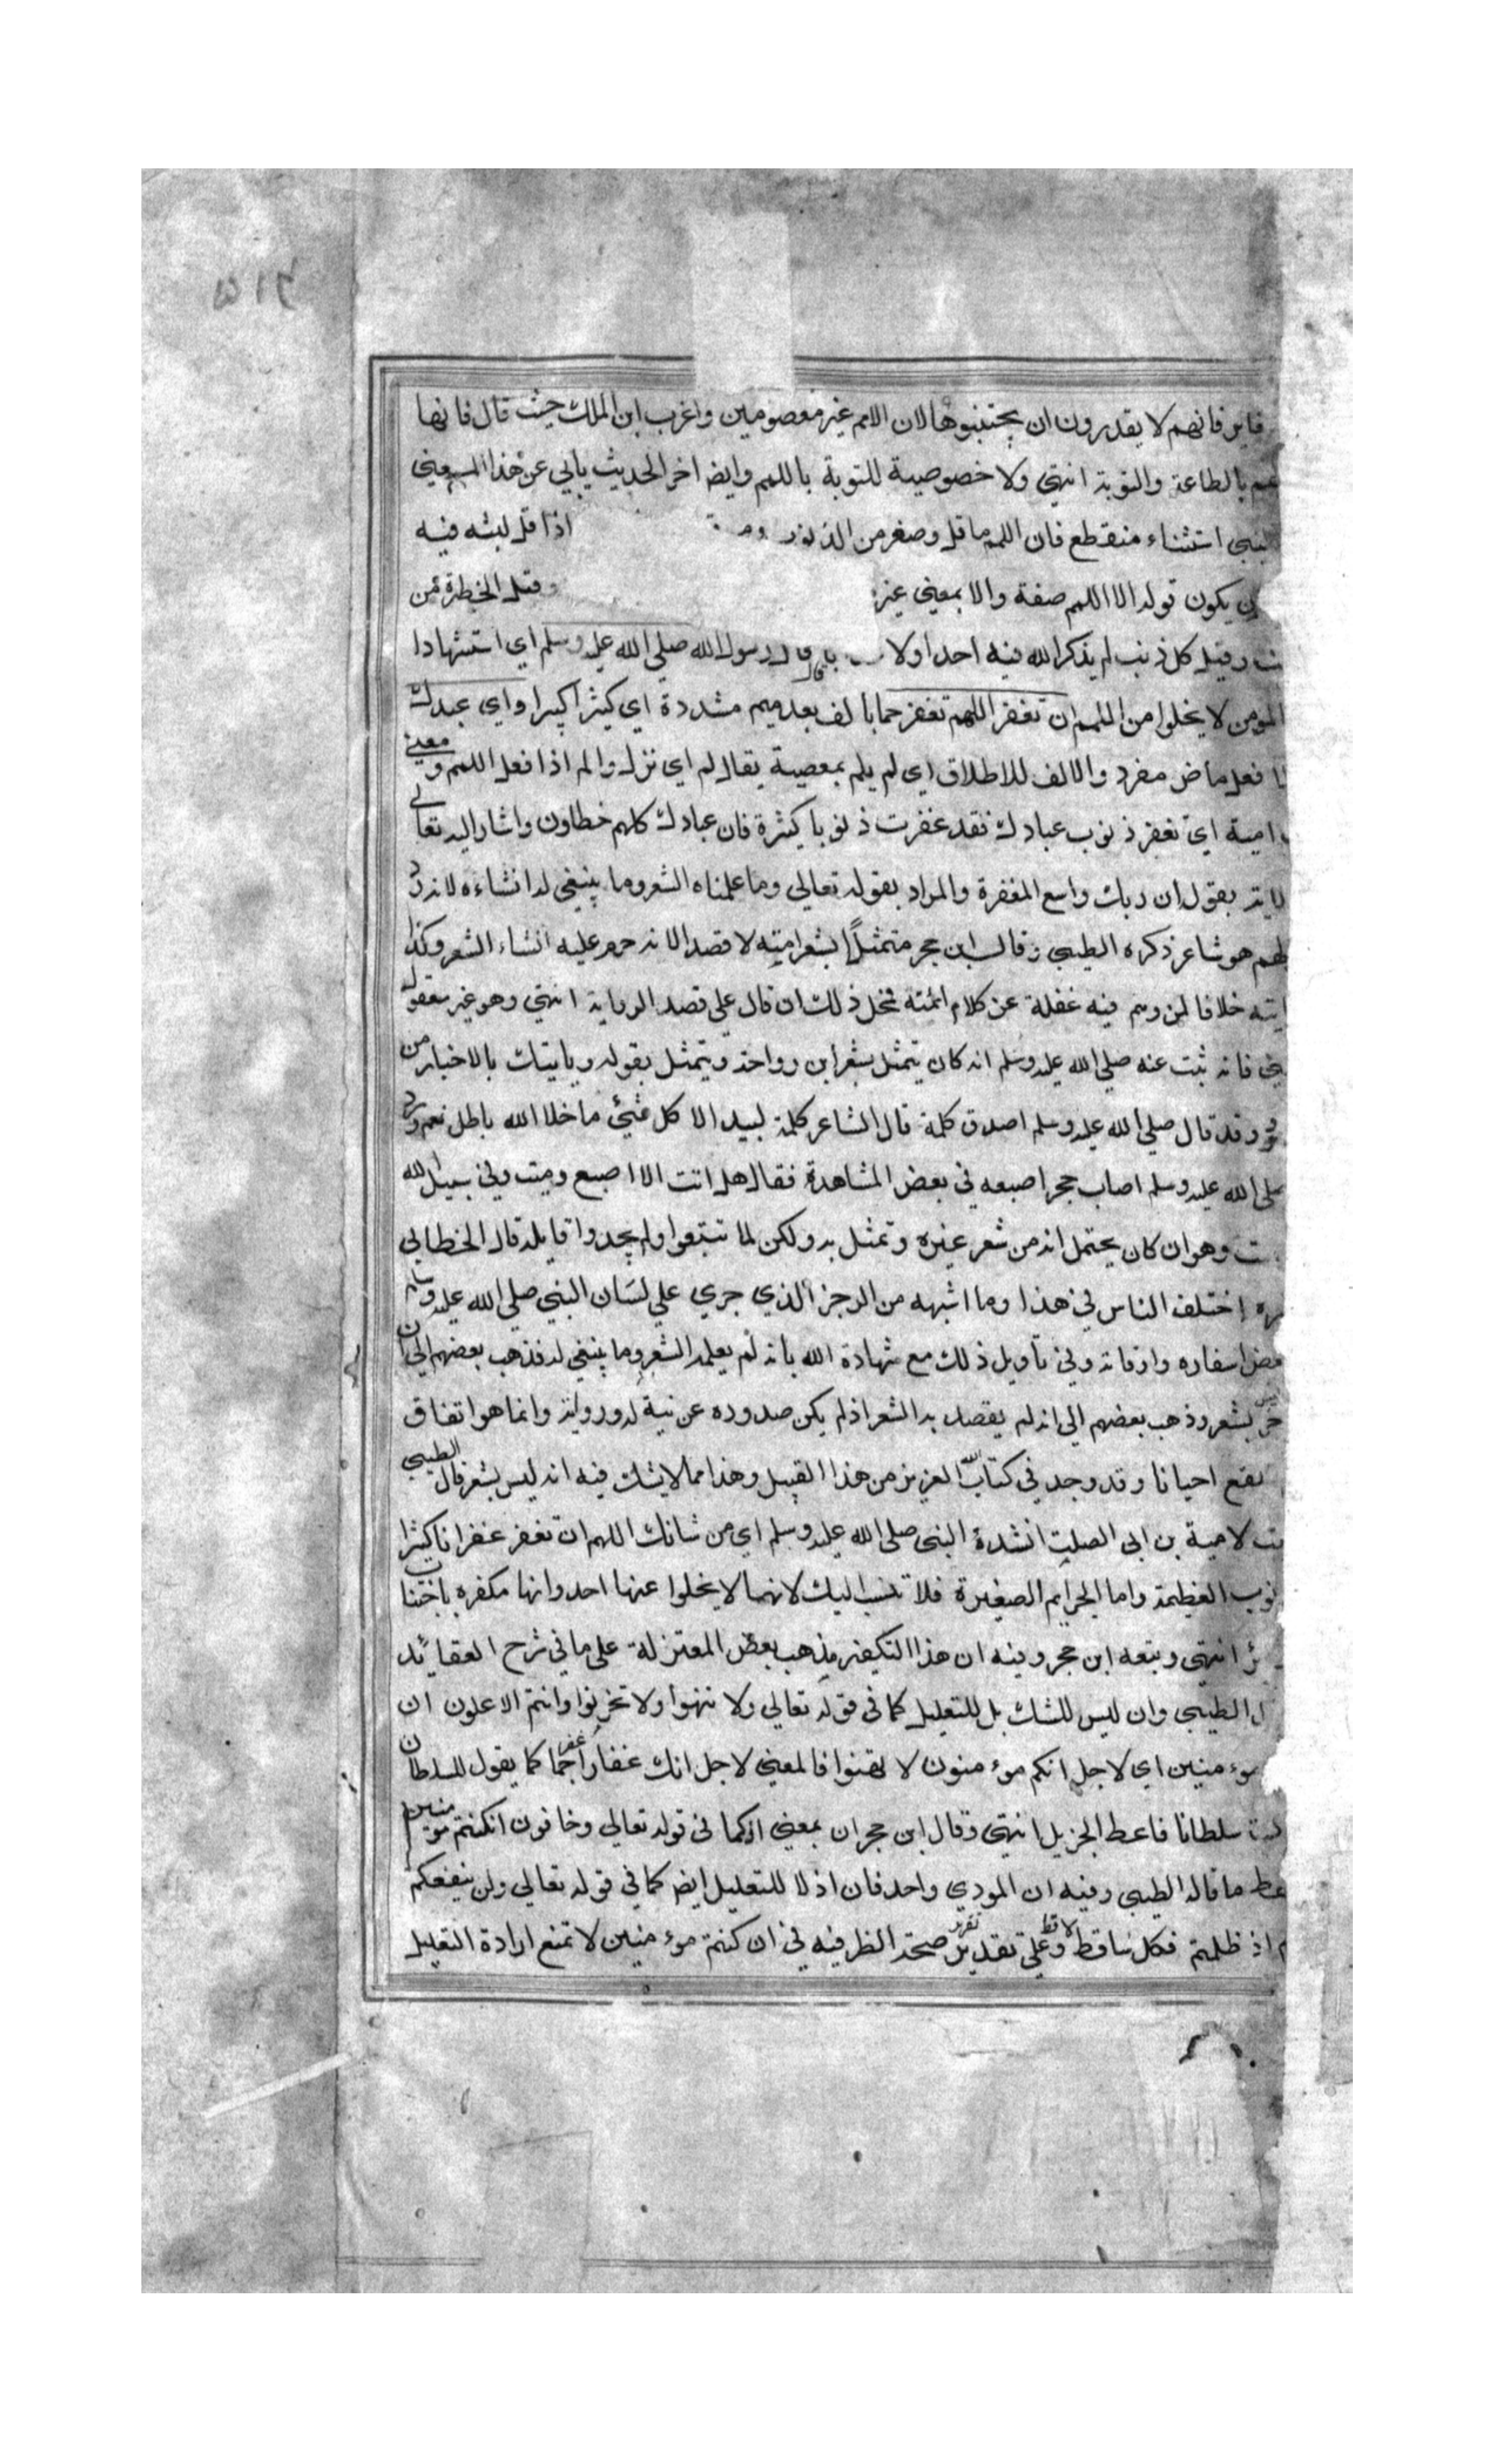 ٢١٥
فانهم لا يقدرون ان يجتنبوها لان الامم غير معصومين واغرب ابن الملك حيث قال فانها
بالطاعة والتوبة انتهى ولا خصوصية للتوبة باللمم وايضا اخر الحديث يابي عن هذا المعني
استثناء منقطع فان اللمم ما قل وصغر من الذنوب اذا قل لبثه فيه
يكون قوله الا اللمم صفة والا بمعني غير وقيل الخطرة من
وقيل كل ذنب لم يذكر الله فيه احدا ولا قال رسول الله صلي الله عليه وسلم اي استشهادا
المومن لا يخلوا من اللمم ان تغفر اللهم تغفر جما بالف بعد ميم مشددة اي كثيرا كبيرا واي عبدك
فعل ماض مفرد والالف للاطلاق اي لم يلم بمعصية يقال لم اي نزل والم اذا فعل اللمم ومعني
امية اي تغفر ذنوب عبادك فقد غفرت ذنوبا كثيرة فان عبادك كلهم خطاون واشار اليه تعالي
بقول ان ربك واسع المغفرة والمراد بقوله تعالي وما علمناه الشعر وما ينبغي له انشاءه لانه رد
هو شاعر ذكره الطيبي وقال ابن حجر متمثلًا بشعر امية لا قصد الانه حرم عليه انشاء الشعر وكذا
خلافا لمن وهم فيه غفلة عن كلام ائمته فحل ذلك ان قال علي قصد الرواية انتهى وهو غير معقول
فانه ثبت عنه صلي الله عليه وسلم انه كان يتمثل بشعر ابن رواحة ويتمثل بقوله وياتيك بالاخبار من
وقد قال صلي الله عليه وسلم اصدق كلمة قال الشاعر كلمة لبيد الا كل شيئ ما خلا الله باطل نعم ورد
صلي الله عليه وسلم اصاب حجر اصبعه في بعض المشاهدة فقال هل انت الا اصبع دميت وفي سبيل الله
وهو ان كان يحتمل انه من شعر غيره وتمثل به ولكن لما تتبعوا ولم يجدوا قايله قال الخطابي
اختلف الناس في هذا وما اشبهه من الرجز الذي جري علي لسان النبي صلي الله عليه وسلم
اسفاره واوقاته وفي تاويل ذلك مع شهادة الله بانه لم يعلمه الشعر وما ينبغي له فذهب بعضهم الي ان
بشعر وذهب بعضهم الي انه لم يقصد به الشعر اذ لم يكن صدوره عن نية له وروية وانما هو اتفاق
يقع احيانا وقد وجد في كتاب الله العزيز من هذا القبيل وهذا مما لا يشك فيه انه ليس بشعر قال الطيبي
لامية بن ابي الصلت انشدة النبي صلي الله عليه وسلم اي من شانك اللهم ان تغفر غفرانا كثيرا
العظيمة واما الجرايم الصغيرة فلا تنسب اليك لانها لا يخلوا عنها احد وانها مكفره باجتناب
انتهى وتبعه ابن حجر وفيه ان هذا التكفير مذهب بعض المعتزلة علي ما في شرح العقائد
الطيبي وان ليس للشك بل للتعليل كما في قوله تعالي ولا تهنوا ولا تحزنوا وانتم الاعلون ان
موء منين اي لاجل انكم موء منون لا تهنوا فالمعني لاجل انك غفار اغفر جما كما يقول للسلطان
سلطانا فاعط الجزيل انتهى وقال ابن حجر ان بمعني اذ كما في قوله تعالي وخافون انكنتم مومنين
ما قاله الطيبي وفيه ان المودي واحد فان اذ للتعليل ايضا كما في قوله تعالي ولن ينفعكم
اذ ظلمتم فكل ساقط لاقط وعلي تقدير صحة الظرفيه في ان كنتم موء منين لا تمنع ارادة التعليل